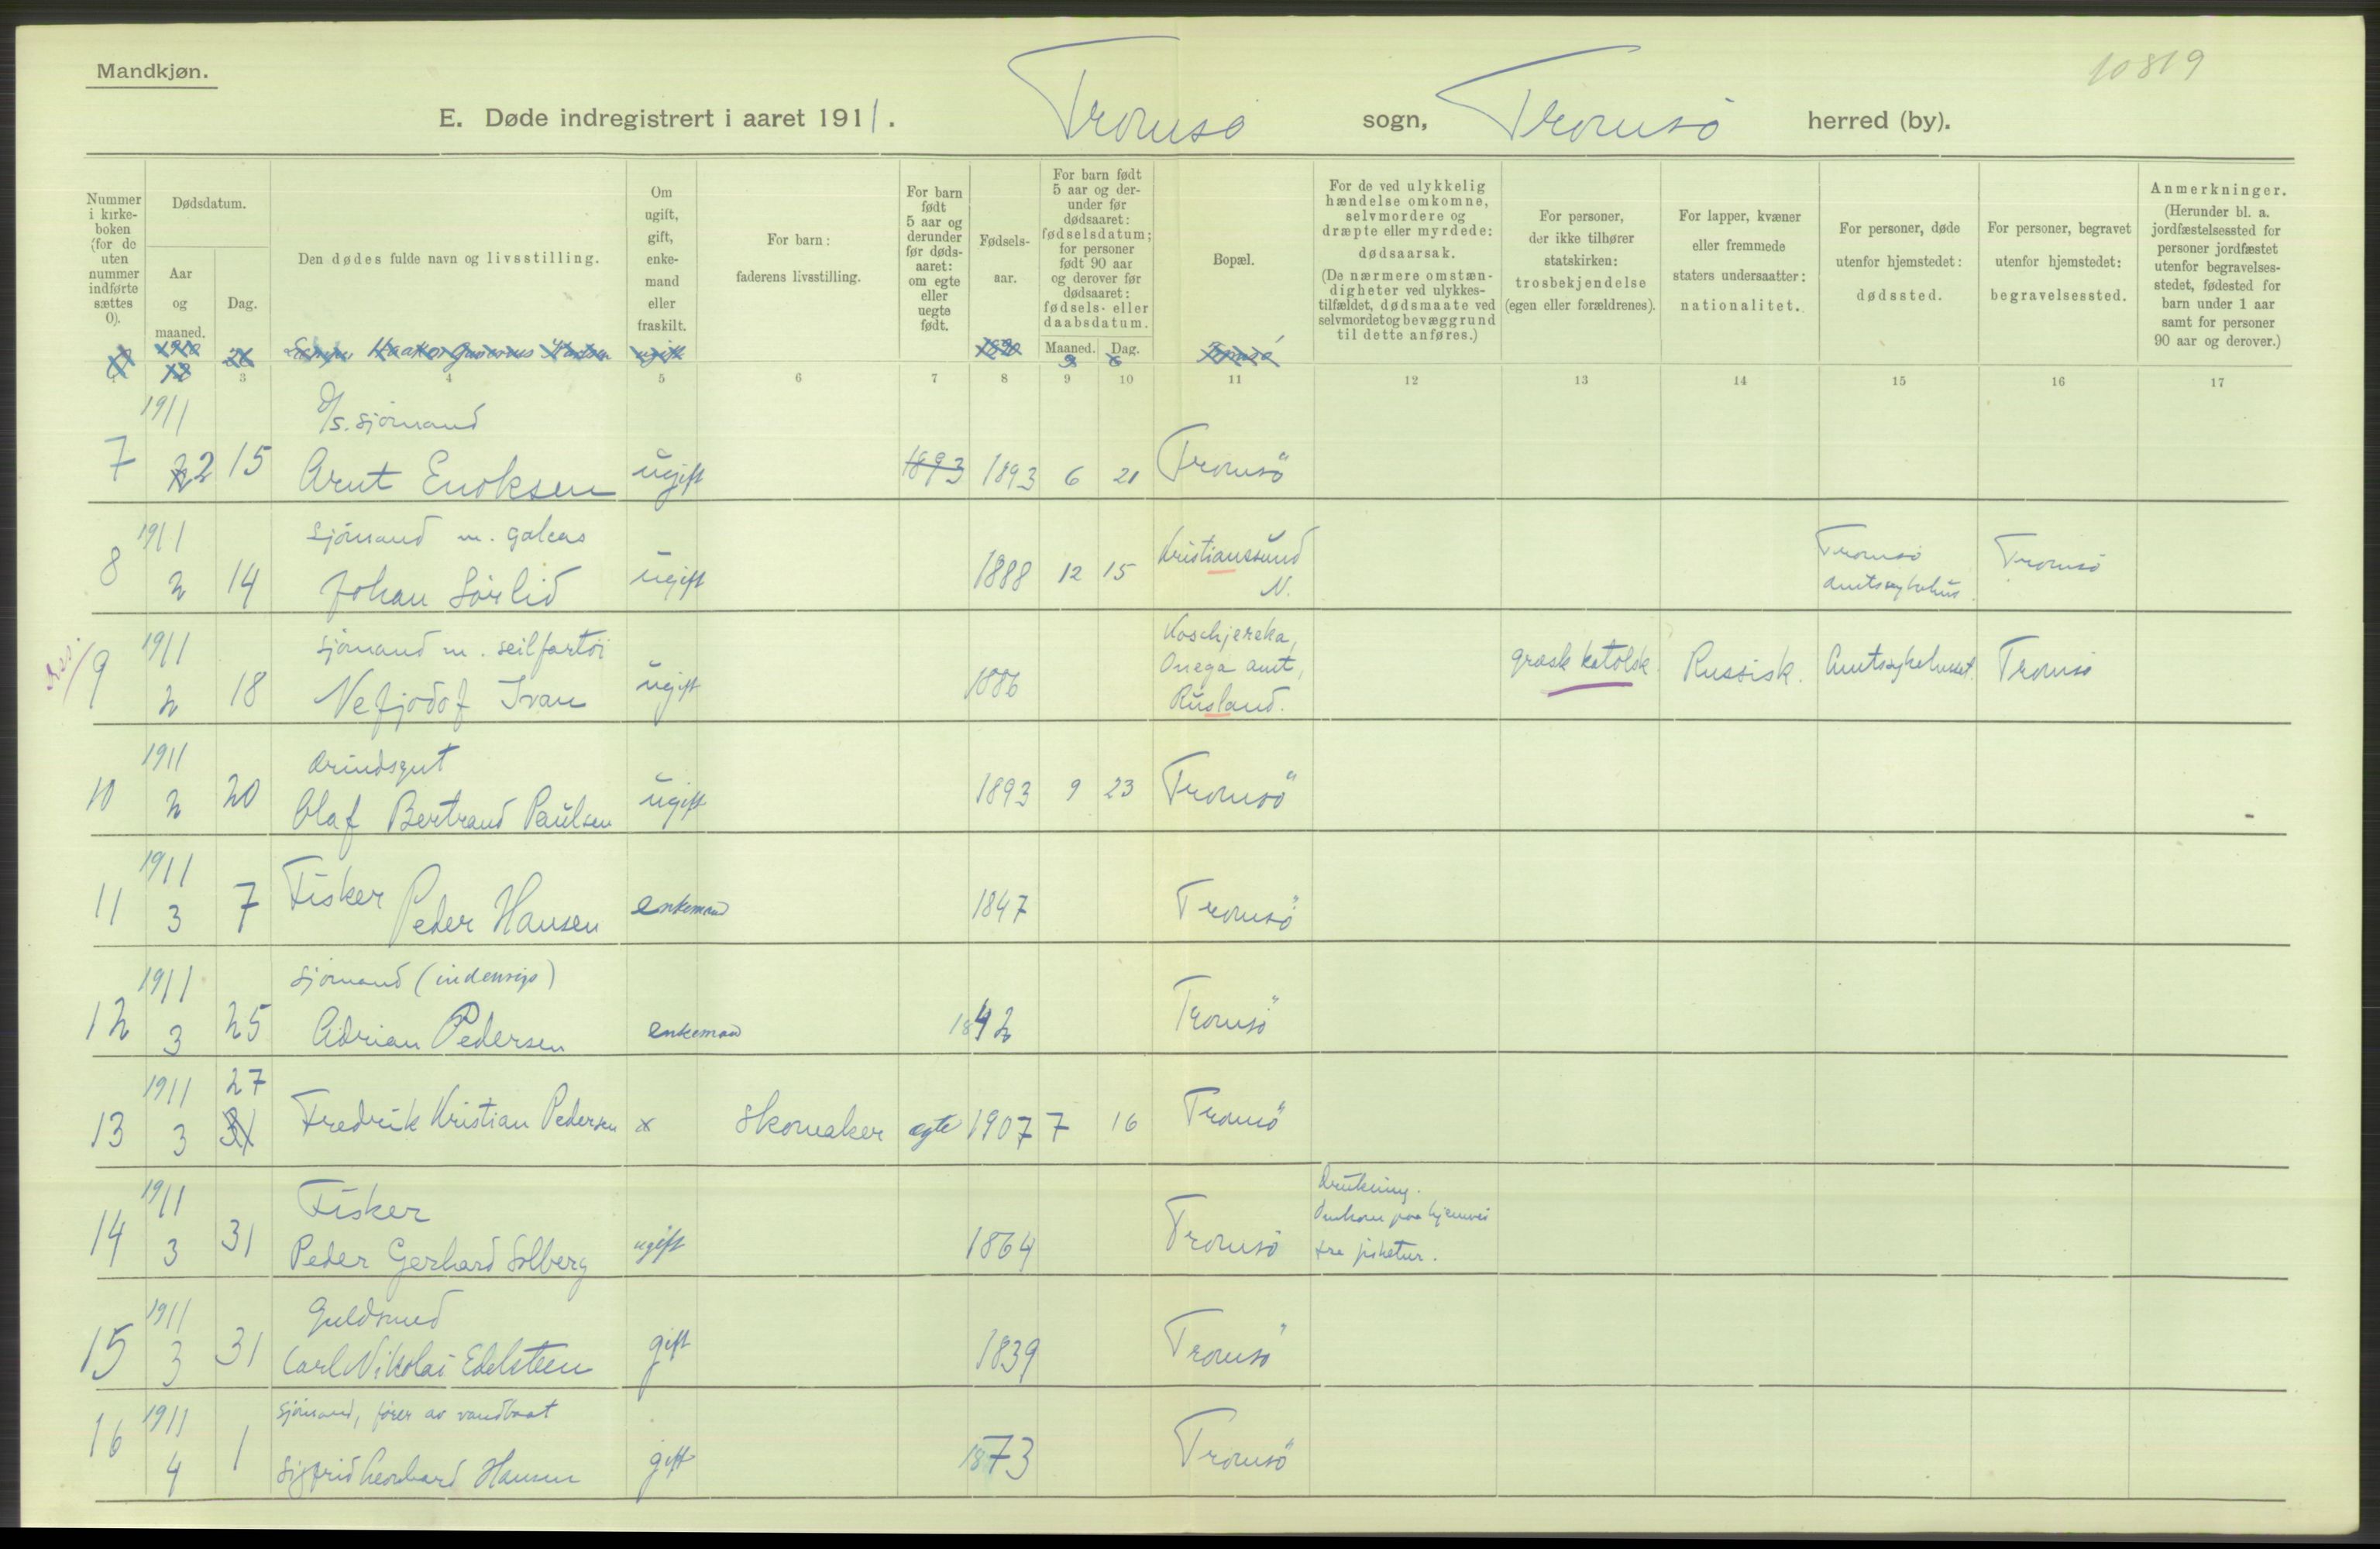 Mandkjøn.
10819
E. Døde indregistrert i aaret 1911. Tromsø sogn, Tromsø herred (by).
Nummer i kirkeboken (for de uten nummer indførte sættes 0).
Dødsdatum.
Aar og maaned.
Dag.
Den dødes fulde navn og livsstilling.
Om ugift, gift, enkemand eller fraskilt.
For barn: faderens livsstilling.
For barn født 5 aar og derunder før dødsaaret: om egte eller uegte født.
Fødselsaar.
For barn født 5 aar og derunder før dødsaaret: fødselsdatum; for personer født 90 aar og derover før dødsaaret: fødsels- eller daabsdatum.
Maaned. Dag.
Bopæl.
For de ved ulykkelig hændelse omkomne, selvmordere og dræpte eller myrdede: dødsaarsak. (De nærmere omstændigheter ved ulykkestilfældet, dødsmaate ved selvmordet og bevæggrund til dette anføres.)
For personer, der ikke tilhører statskirken: trosbekjendelse (egen eller forældrenes).
For lapper, kvæner eller fremmede staters undersaatter: nationalitet.
For personer, døde utenfor hjemstedet: dødssted.
For personer, begravet utenfor hjemstedet: begravelsessted.
Anmerkninger. (Herunder bl. a. jordfæstelsessted for personer jordfæstet utenfor begravelsesstedet, fødested for barn under 1 aar samt for personer 90 aar og derover.)
3 4 5 6 7 8 9 10 11 12 13 14 15 16 17
1911 D/S. sjømand
7 2 15 Arnt Enoksen ugift 1893 1893 6 21 Tromsö
1911 sjømand m. galeas Kristianssund Tromsö
8 2 14 Johan Sörlid ugift 1888 12 15 N. Amtssykehus Tromsö
1911 sjömand m. seilfartöi Koschjereka,
9 2 18 Nefjodof Ivan ugift 1886 Onega amt, græsk katolsk. Russisk. Amtssykehuset. Tromsö
Rusland.
1911 Ærindsgut
10 2 20 Olaf Bertrand Paulsen ugift 1893 9 23 Tromsö
1911 Fisker
11 3 7 Peder Hansen enkemand 1847 Tromsö
1911 sjömand (indenrigs)
12 3 25 Adrian Pedersen enkemand 1842 Tromsö
1911 27
13 3 31 Fredrik Kristian Pedersen x Skomaker egte 1907 7 16 Tromsö
1911 Fisker Drukning.
14 3 31 Peder Gerhard Solberg ugift 1864 Tromsö Omkom paa hjemvei
fra fisketur.
1911 Guldsmed
15 3 31 Carl Nikolai Edelsteen gift 1839 Tromsö
1911 Sjömand, fører av vandbaat
16 4 1 Sigfrid Leonhard Hansen gift 1873 Tromsö